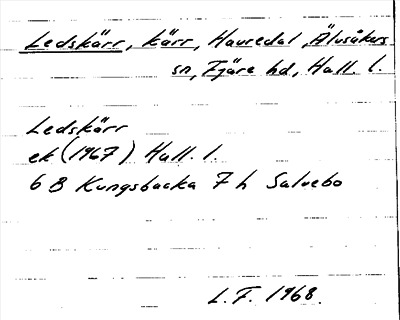 Ledskärr, kärr, Hauredal, Älvsåkers
sn, Fjäre hd, Hall. l.
Ledskärr
ek (1967) Hall. l.
6 B Kungsbacka 7 h Salvebo
L.F. 1968.